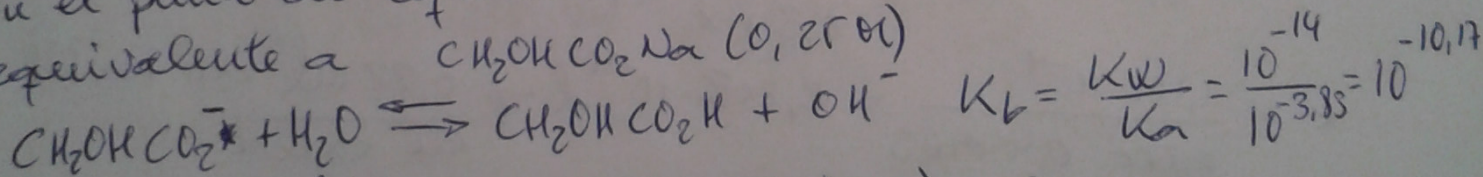 u el p
equivalente a CH₂OHCO₂Na (0,25 M)
CH₂OHCO₂⁻ + H₂O ⇌ CH₂OHCO₂H + OH⁻ Kb = Kw/Ka = 10⁻¹⁴/10⁻³,⁸⁵ = 10⁻¹⁰,¹⁷